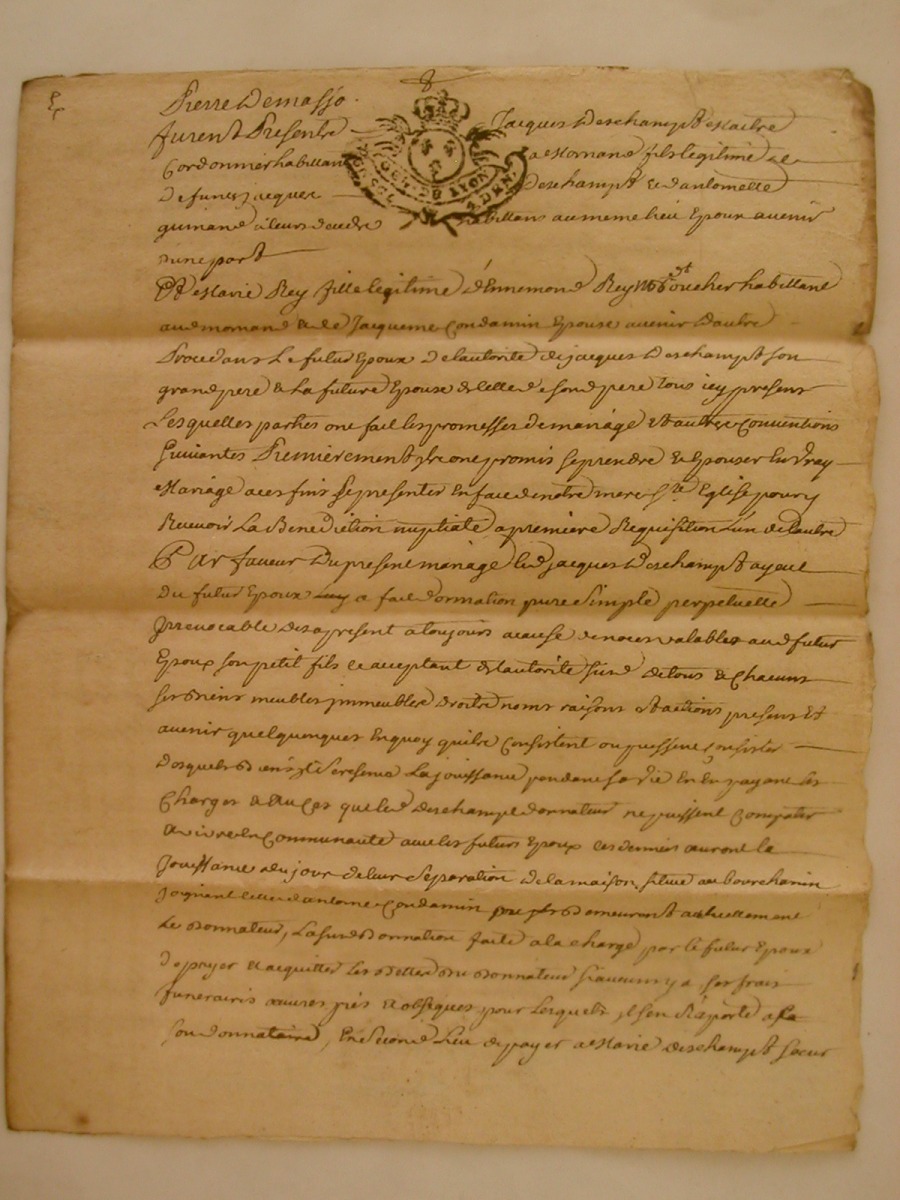 Pierre Demasso.
furent Presentre Jacques Deschampt Maitre
Cordonnier habittant a Mornand fils legitime de
Defuncts jacques Deschampt & d'antoinette
guinand a leurs deudre habittans au meme lieu Epoux avenir
d'une part
Et Marie Rey fille legitime d'Ennemond Rey Me Boucher habittant
aud mornand & de Jacqueme Condamin Epouse avenir d'autre
Procedans Le futur Epoux De lautorité de jacques Deschampt son
grand pere & La future Epouse de celle de sond pere tous icy present
Lesquelles parties ont fait les promesses de mariage et autres Conventions
Suivantes Premierement ils ont promis se prendre & Epouser En Vray
Mariage a ces fins se presenter En face de notre mere Ste Eglise pour y
Recevoir La Benediction nuptiale a premiere Requisition L'un de Lautre
Par faveur Du present mariage led jacques Deschampt ayeul
Du futur Epoux luy a fait donnation pure Simple perpetuelle
Irrevocable des a present a toujours a cause de noces valable aud futur
Epoux son petit fils ce acceptant de l'autorité susd de tous & Chacuns
ses Biens meubles immeubles Droits noms raisons et actions presens Et
avenir quelquonques En quoy quils Consistent ou puissent Consister
Desquels biens il se reserve La jouissance pendant sa vie En En payant les
Charges & Au Cas que led Deschampt donnateur ne puissent Compatir
A vivre En Communauté avec les futurs Epoux ces derniers auront la
Jouissance du jour de leur Separation De la maison situé au bourchanin
Joignant celle d'antoine Condamin demeurant actuellement
Le Donnateur, La susd Donnation faite a la charge par le futur Epoux
De payer & acquitter Les Dettes Du Donnateur si aucuns y a, ses frais
funerairis œuvres pies & obseques pour Lesquels il s'en Raporte a la
son donnataire, En Second Lieu de payer a Marie Deschampt Sœur